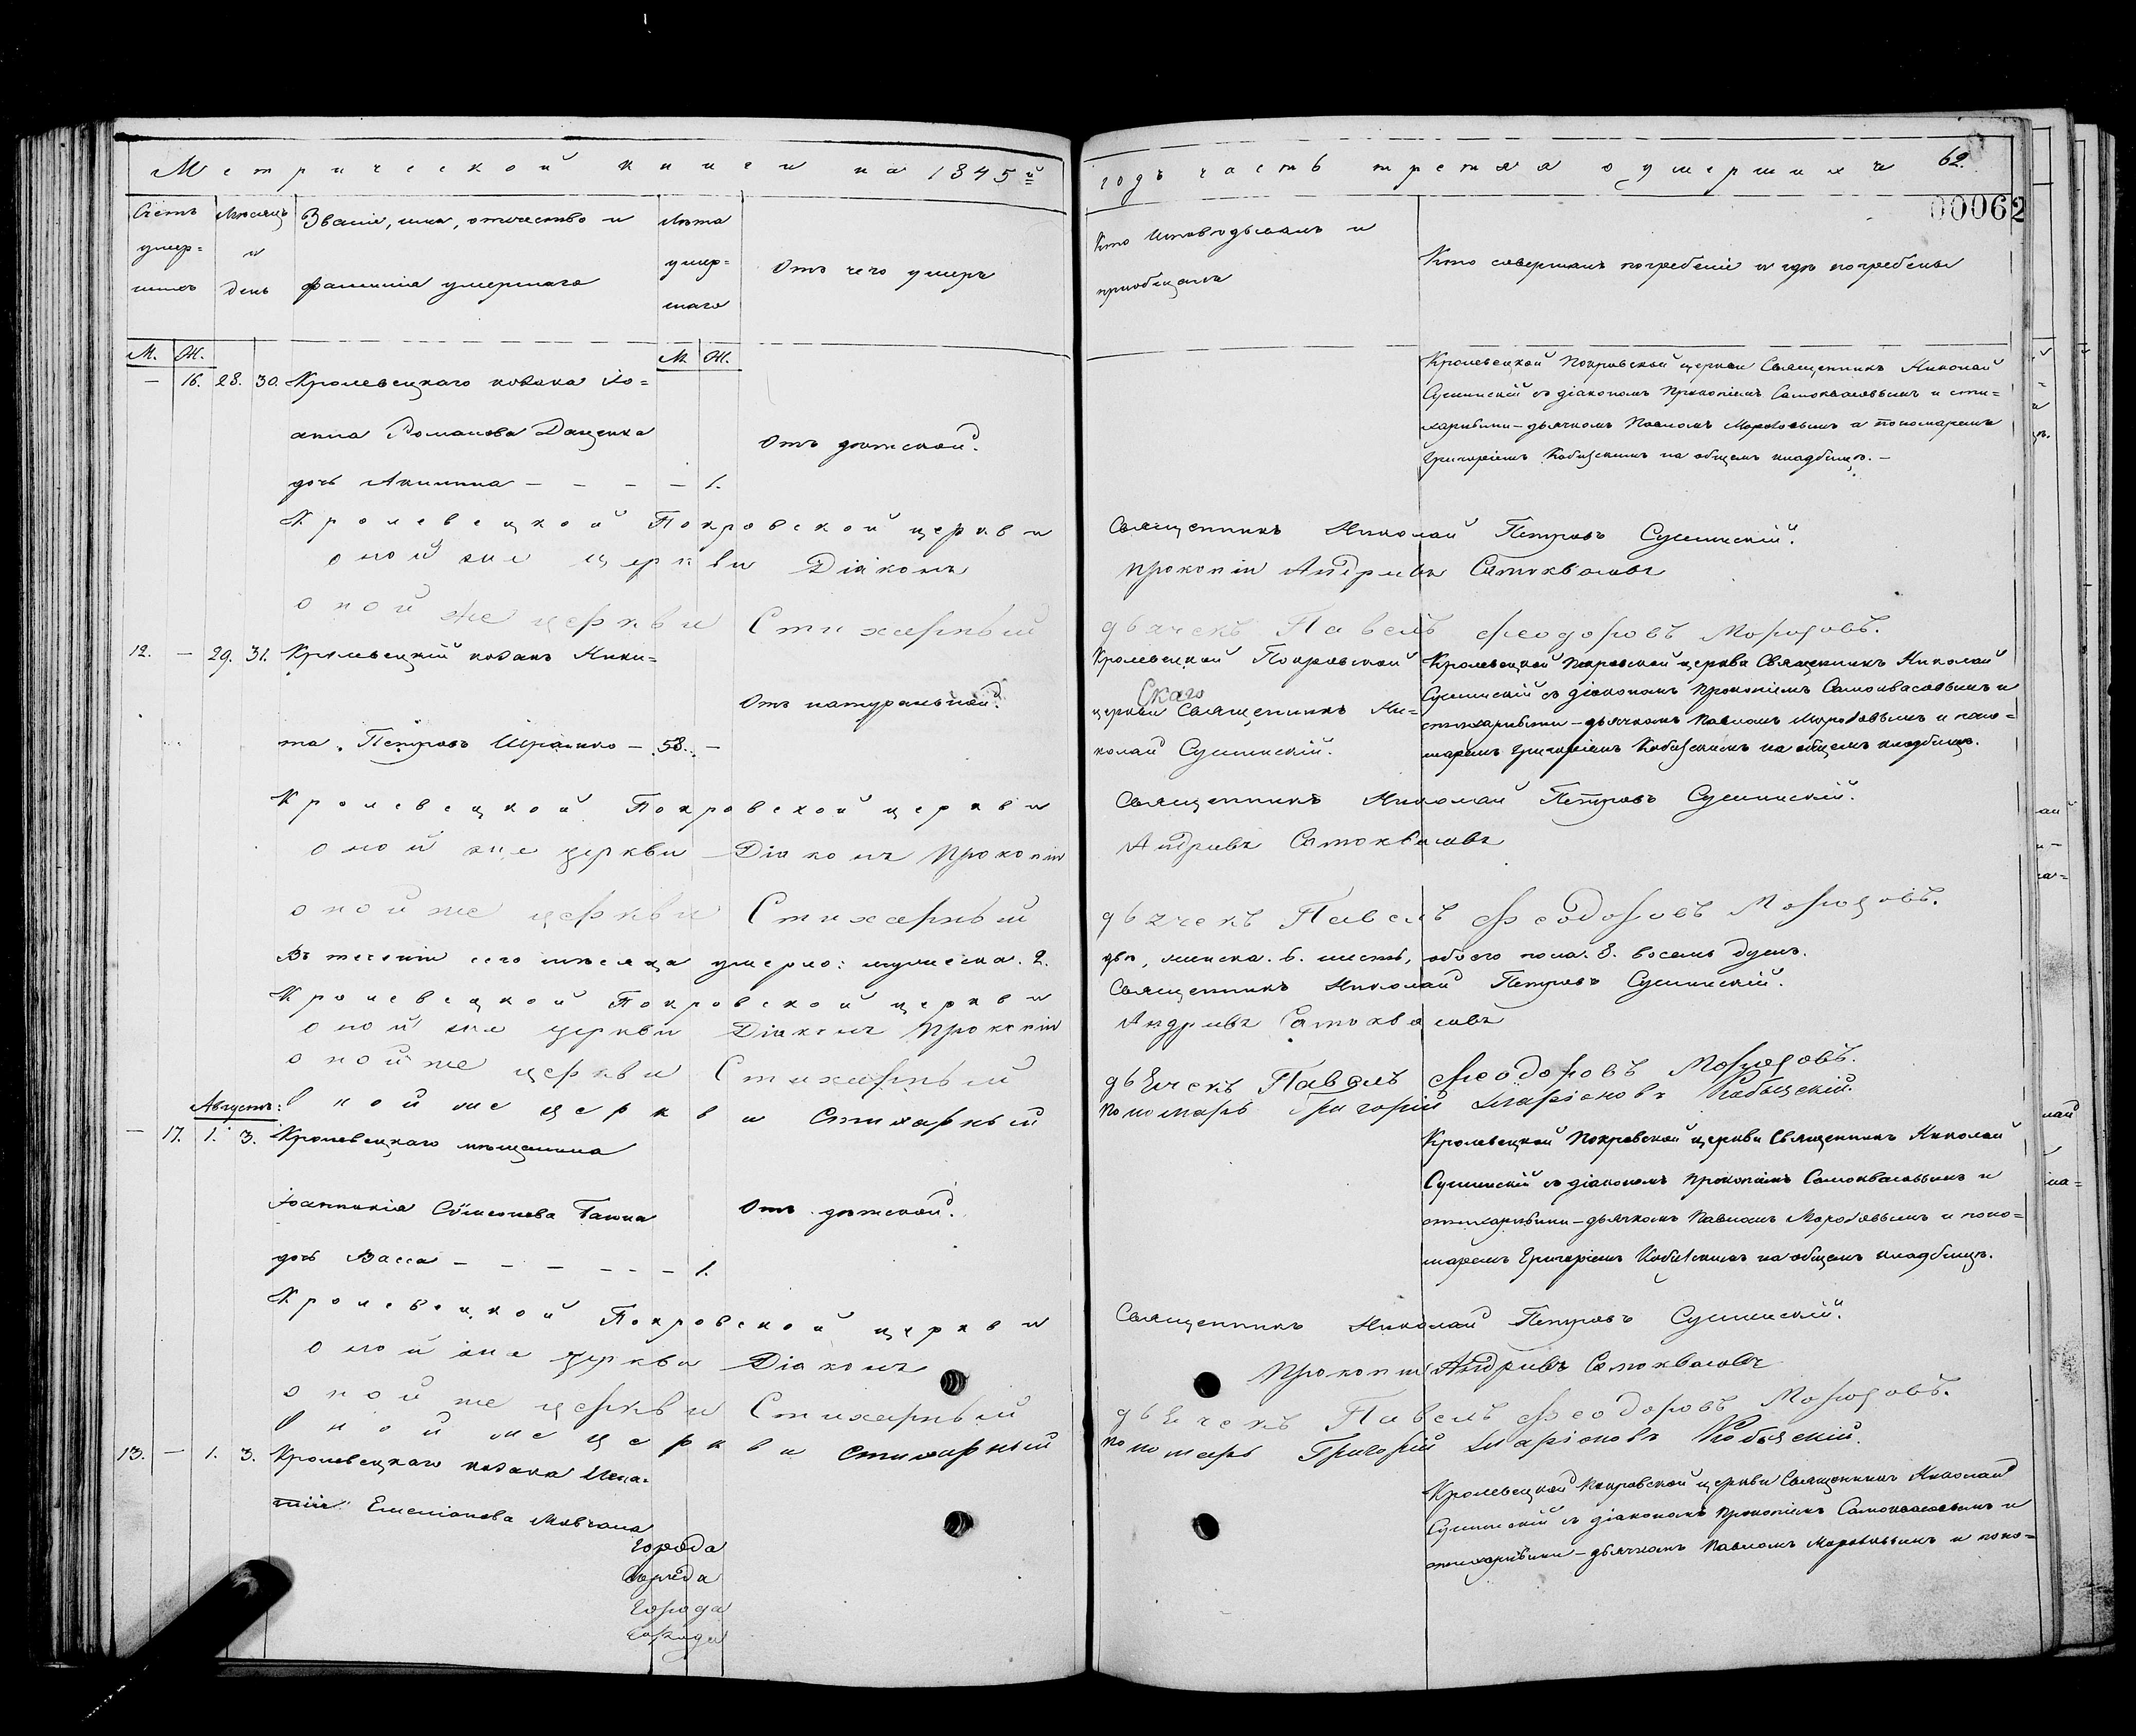 Метрической книги на 1845й
годъ часть третяя о умершихъ 62.
00062
Счетъ умер=
шихъ
Мѣсяцъ
и
день
Званіе, имя, отчество и
фамилія умершаго
Лѣта
умер=
шаго
Отъ чего умеръ
Кто исповѣдывалъ и
приобщалъ
Кто совершалъ погребеніе и гдѣ погребены
М. Ж.
М. Ж.
— 16. 28. 30. Кролевецкаго козака Іо=
анна Романова Даценка
дочь Акилина — — — — 1.
Отъ дѣтской.
Кролевецкой Покровской церкви Священникъ Николай
Сушинскій съ діакономъ Прокопіемъ Самоквасовымъ и сти=
харными – дьячкомъ Павломъ Морозовымъ и пономаремъ
Григоріемъ Кобызскимъ на общемъ кладбищѣ. —
Кролевецкой Покровской церкви Священникъ Николай Петровъ Сушинскій.
оной же церкви Діаконъ Прокопій Андреевъ Самоквасовъ
оной же церкви Стихарный дьячекъ Павелъ Феодоровъ Морозовъ.
12. — 29. 31. Кролевецкій козакъ Ники=
та Петровъ Ищенко — 58. —
Отъ натуральной.
Кролевецкой Покровской
Скаго
церкви Священникъ Ни=
колай Сушинскій.
Кролевецкой Покровской церкви Священникъ Николай
Сушинскій съ діакономъ Прокопіемъ Самоквасовымъ и
стихарными – дьячкомъ Павломъ Морозовымъ и поно=
маремъ Григоріемъ Кобызскимъ на общемъ кладбищѣ.
Кролевецкой Покровской церкви Священникъ Николай Петровъ Сушинскій.
оной же церкви Діаконъ Прокопій Андреевъ Самоквасовъ
оной же церкви Стихарный дьячекъ Павелъ Феодоровъ Морозовъ.
Въ теченіи сего мѣсяца умерло: мужеска. 2. два, женска. 6. шесть, обоего пола. 8. восемь душъ.
Кролевецкой Покровской церкви Священникъ Николай Петровъ Сушинскій.
оной же церкви Діаконъ Прокопій Андреевъ Самоквасовъ
оной же церкви Стихарный дьячекъ Павелъ Феодоровъ Морозовъ.
оной же церкви Стихарный пономарь Григорій Иларіоновъ Кобызскій.
Августъ:
— 17. 1. 3. Кролевецкаго мѣщанина
Іоанникія Сѵмеонова
дочь Васса — — — — — — 1.
Отъ дѣтской.
Кролевецкой Покровской церкви Священникъ Николай
Сушинскій съ діакономъ Прокопіемъ Самоквасовымъ и
стихарными – дьячкомъ Павломъ Морозовымъ и поно=
маремъ Григоріемъ Кобызскимъ на общемъ кладбищѣ.
Кролевецкой Покровской церкви Священникъ Николай Петровъ Сушинскій.
оной же церкви Діаконъ Прокопій Андреевъ Самоквасовъ
оной же церкви Стихарный дьячекъ Павелъ Феодоровъ Морозовъ.
оной же церкви Стихарный пономарь Григорій Иларіоновъ Кобызскій.
13. — 1. 3. Кролевецкаго козака
Емеліанова Мовчана
Кролевецкой Покровской церкви Священникъ Николай
Сушинскій съ діакономъ Прокопіемъ Самоквасовымъ и
стихарными – дьячкомъ Павломъ Морозовымъ и поно=
города
города
города
города